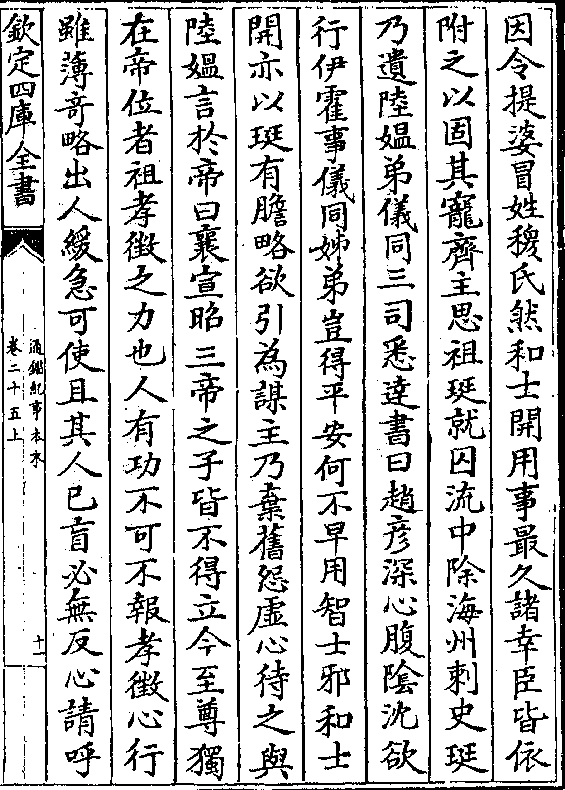 因令提婆冒姓穆氏然和士開用事最久諸幸臣皆依
附之以固其寵齊主思祖珽就囚流中除海州刺史珽
乃遺陸媪弟儀同三司悉達書曰趙彦深心腹陰沈欲
行伊霍事儀同姊弟豈得平安何不早用智士邪和士
開亦以珽有膽略欲引為謀主乃棄舊怨虛心待之與
陸媪言於帝曰襄宣昭三帝之子皆不得立今至尊獨
在帝位者祖孝徵之力也人有功不可不報孝徵心行
雖薄奇略出人緩急可使且其人已盲必無反心請呼
欽定四庫全書
通鑑紀事本末
卷二十五上
十一